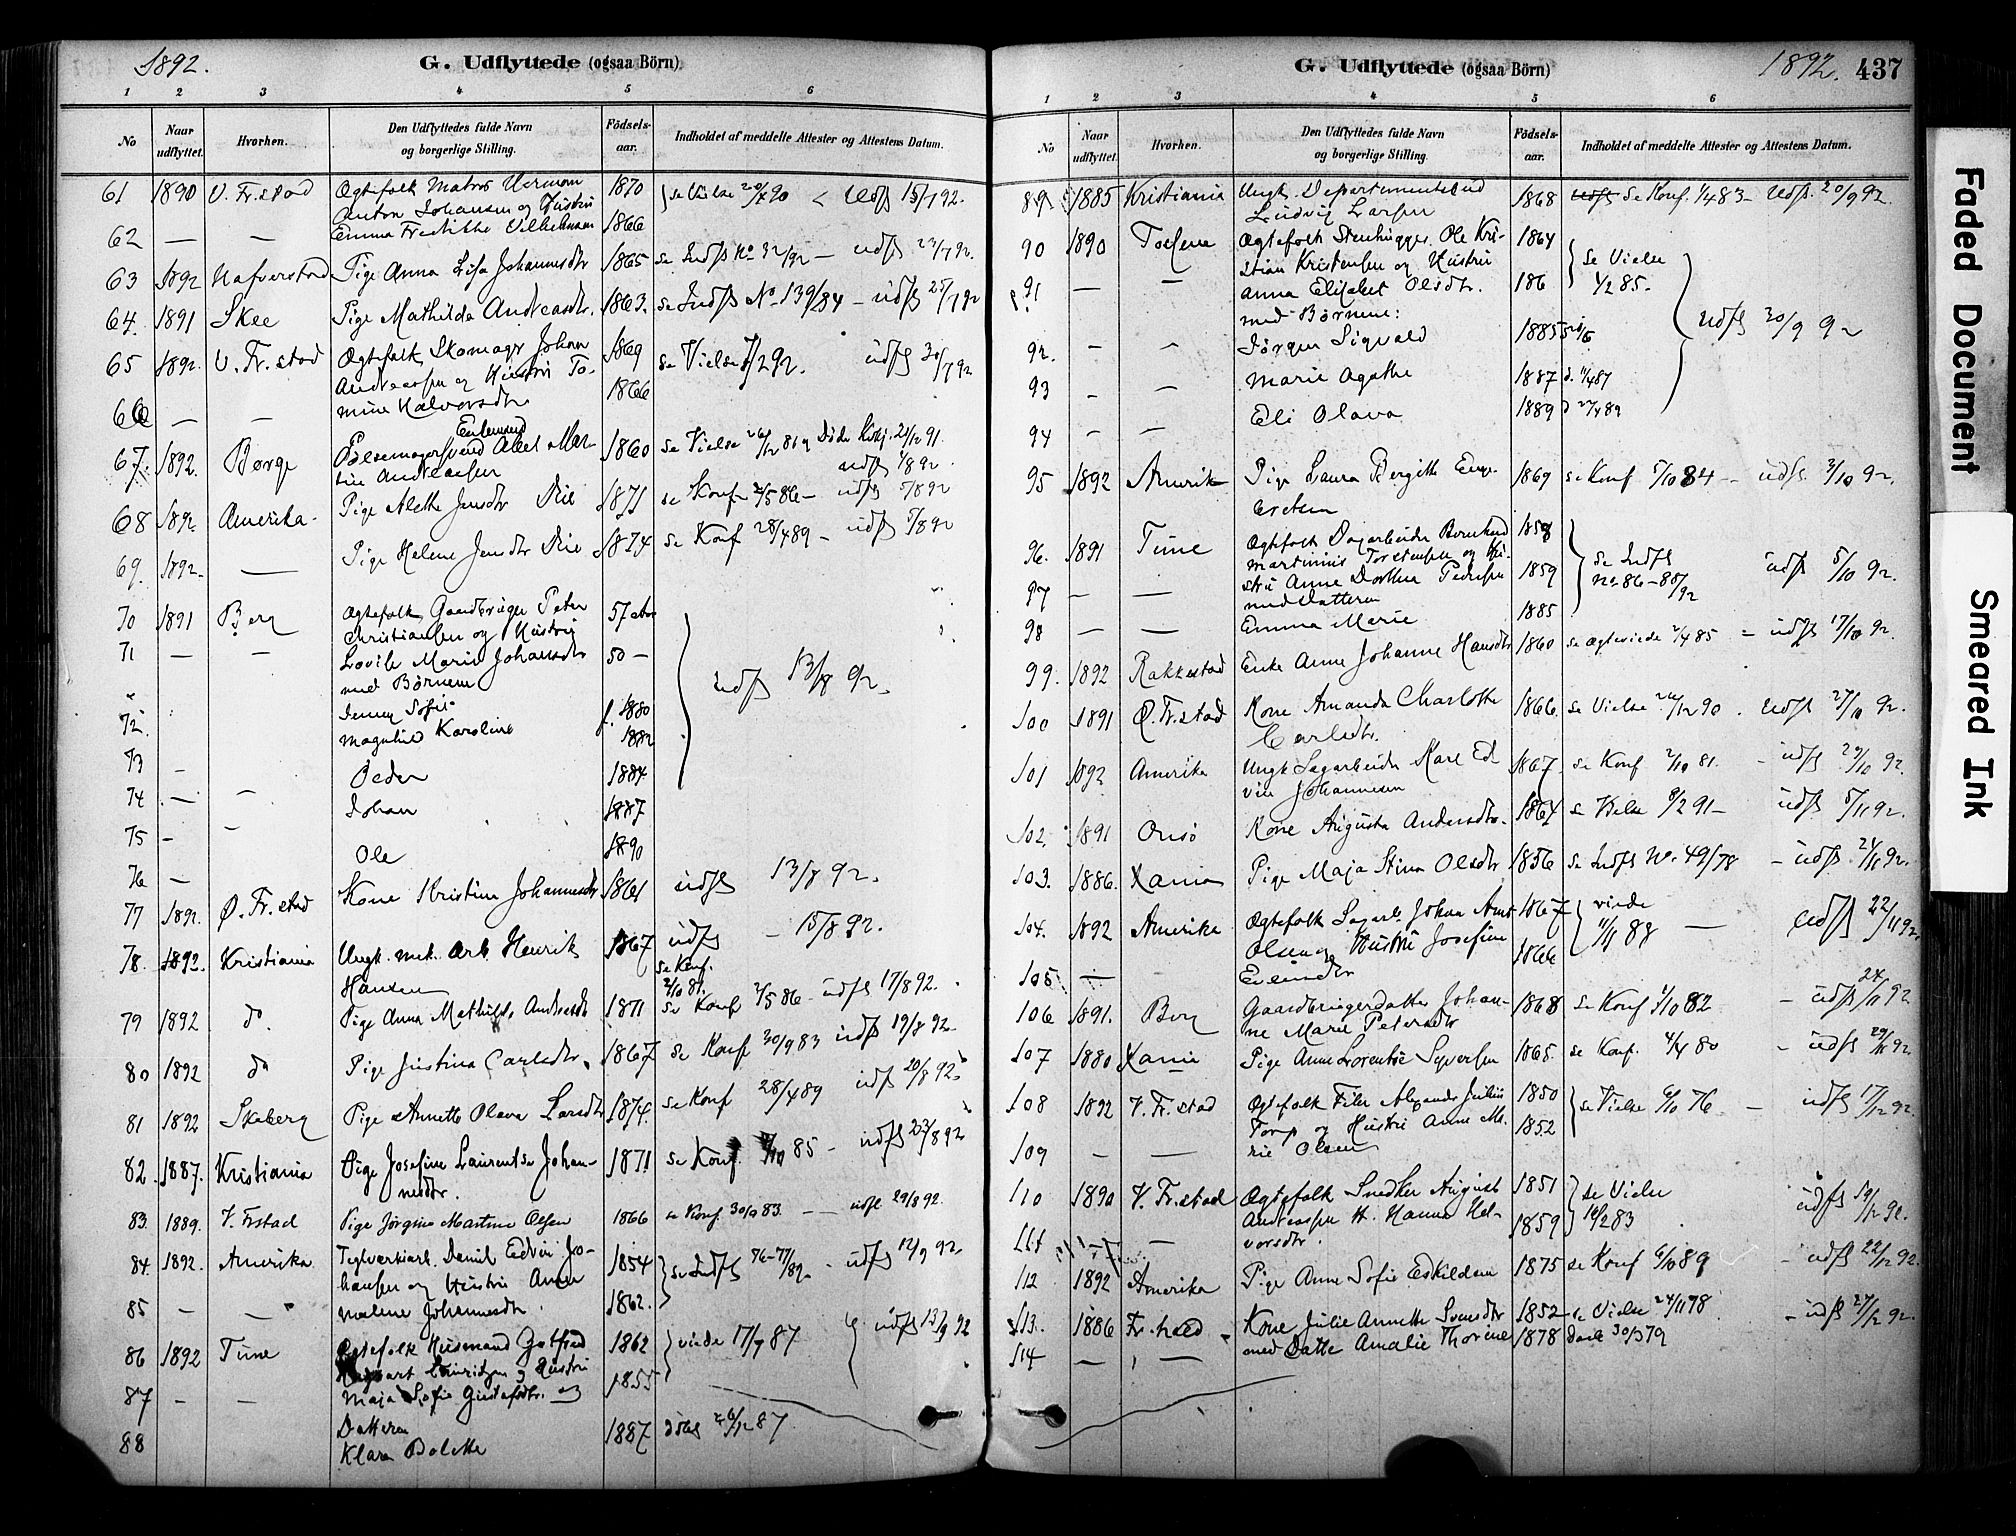 1892.
G. Udflyttede (ogsaa Börn)
1 2 3 4 5 6
No
Naar udflyttet.
Hvorhen.
Den Udflyttedes fulde Navn og borgerlige Stilling.
Födsels-aar.
Indholdet af meddelte Attester og Attestens Datum.
61 1890 V. Fr.stad Ægtefolk Matros Herman 1870 se Vielse 90 Udfl 15/7 92.
Anton Johansen og Hustru
62 — — Emma Fredrikke Vilhelmsen 1866
63 1892 Nafverstad Pige Anna Lisa Johannesdtr 1865 se Indfl No 32/92 — udfl 23/7 92.
64. 1891 Skee Pige Mathilda Andreasdtr. 1863. se Indfl No 139/84 — udfl 25/7 92
65 1892. V. Fr.stad Ægtefolk Skomager Johan 1869 se Vielse 7/2 92. udfl 30/7 92
Andreassen og Hustru To-
66 — — mine Halvorsdtr 1866
Enkemand
67. 1892. Borge Pølsemagersvend Abel Mar- 1860 se Vielse 26/12 86 Døde 21/12 91.
tin Andreassen udfl 1/8 92.
68 1892 Amerika. Pige Alette Jensdtr Rie 1871 se Konf 2/5 86 — udfl 5/8 92
69. 1892. — Pige Helene Jensdtr Rie 1874 se Konf 28/4 89 — udfl 5/8 92
70 1891 Berg Ægtefolk Gaardbruger Peter 57 aar
Christiansen og Hustru
71 — — Lovise Marie Johansdtr 50 —
med Børnene udfl 13/8 92.
Jenny Sofie f. 1880
72. Magnhild Karoline 1882
73 — Peder 1884
74 — — Johan 1887
75 — — Ole 1890
76 —
77 1892. Ø. Fr.stad Kone Kristine Johannesdtr 1861 udfl 13/8 92.
78. 1892. Kristiania Ungk. mek. Arb. Henrik 1867 udfl — 15/8 92.
Hansen se Konf. 2/10 81.
79 1892 do. Pige Anna Mathilde Andreasdtr 1871 se Konf 2/5 86 — udfl 17/8 92.
80 1892 do Pige Justina Carlsdtr. 1867 se Konf 30/9 83 udfl 19/8 92.
81 1892 Skeberg Pige Annette Olava Larsdtr 1874. se Konf 28/4 89 udfl 20/8 92.
82. 1887. Kristiania Pige Josefine Laurentse Johan- 1871 se Konf. /10 85 — udfl 23/8 92
nesdtr.
83. 1889. V. Frstad Pige Jørgine Martine Olsen 1866 se Konf. 30/9 83. — udfl. 29/8 92.
84. 1892. Amerika Teglverksarb. Daniel Edvin Jo- 1854 se Indfl 76-77/89. — udfl 12/9 92.
hansen og Hustru Anne
85 — — Malene Johannesdtr. 1862.
86 1892 Tune Ægtefolk Husmand Gotfred 1862 viede 17/7 87 udfl 13/9 92
og Hustru
87 — — Maja Sofie Gustafsdtr. og 1855
Datteren
88 Klara Bolette 1887 døbt 26/12 87
G. Udflyttede (ogsaa Börn)
1892. 437
1 2 3 4 5 6
No
Naar udflyttet.
Hvorhen.
Den Udflyttedes fulde Navn og borgerlige Stilling.
Födsels-aar.
Indholdet af meddelte Attester og Attestens Datum.
89 1885 Kristiania Ungk. Departementsbud 1868 se Konf. 1/4 83 — Udfl. 20/9 92.
Ludvig Larsen
90 1890 Torsnes Ægtefolk Stenhugger Ole Kri- 1864 se Vielse
stian Kristensen og Hustru 1/2 85.
91 — — Anna Elisabet Olsdtr. 186
med Børnene: udfl 30/9 92
92. — — Jørgen Sigvald 1885
93 — — Marie Agathe 1887 d. 11/4 87
Eli Olava 1889 d 27/4 89
94 — —
95 1892 Amerika Pige Laura Bergitte Ever- 1869 se Konf 5/10 84 — udfl. 3/10 92.
ersten
96. 1891 Tune Ægtefolk Dagarbeider Bernhard 1858 se Indfl
Martinius Torstensen og Hu- No. 86-88/92 udfl 5/10 92.
97 — — stru Anne Dorthea Pedersen 1859
med Datteren
98 — — Emma Marie 1885
99. 1892 Rakkestad Enke Anne Johanne Hansdtr 1860 se Ægteviede 2/4 85 — udfl 17/10 92.
100 1891 Ø. Fr.stad Kone Amanda Charlotte 1866. se Vielse 26/12 90. Udfl 27/10 92.
Carlsdtr.
101 1892 Amerika Ungk Sagarbeider Karl Ed- 1867 se Konf 2/10 81. — udfl 29/10 92.
vin Johannesen
102. 1891 Onsö Kone Augusta Andersdtr. 1864 se Vielse 8/2 91 — udfl 5/11 92.
103. 1886. Xania Pige Maja Stina Olsdtr 1856 se Indfl No. 49/78 — udfl. 21/11 92.
104. 1892 Amerika Ægtefolk Sagarb. Johan Ant. 1867 viede
Olsen og Hustru Josefine 1866 11/11 88 — Udfl 22/11 92.
105 —
106 1891. Berg Gaardbrugerdatter Johan- 1868 se Konf 1/10 82 — udfl 24/11 92
ne Marie Petersdtr
107 1880 Xania Pige Anne Lorentse Syversen 1865. se Konf. 4/4 80 — udfl 29/11 92.
108 1892 V. Fr.stad Ægtefolk Filer Alexander Julius 1850 se Vielse 6/10 76 — udfl 17/12 92.
Torp og Hustru Anne Ma- 1852
109 — — rie Olsen
110 1890 V. Fr.stad Ægtefolk Snedker August 1851 se Vielse udfl 19/12 92.
Andreassen H. Hanna Hal- 1859 16/2 83
111 — — vorsdtr.
112 1892 Amerika Pige Anne Sofie Eskildsen 1875 se Konf 6/10 89 — udfl 22/12 92.
113. 1886 Fr.hald Kone Julie Annette Svensdtr 1852 se Vielse 24/11 78 — udfl 27/12 92.
114 — — med Datter Amalie Thorine 1878 døbt 30/3 79
Faded Document
Smeared Ink